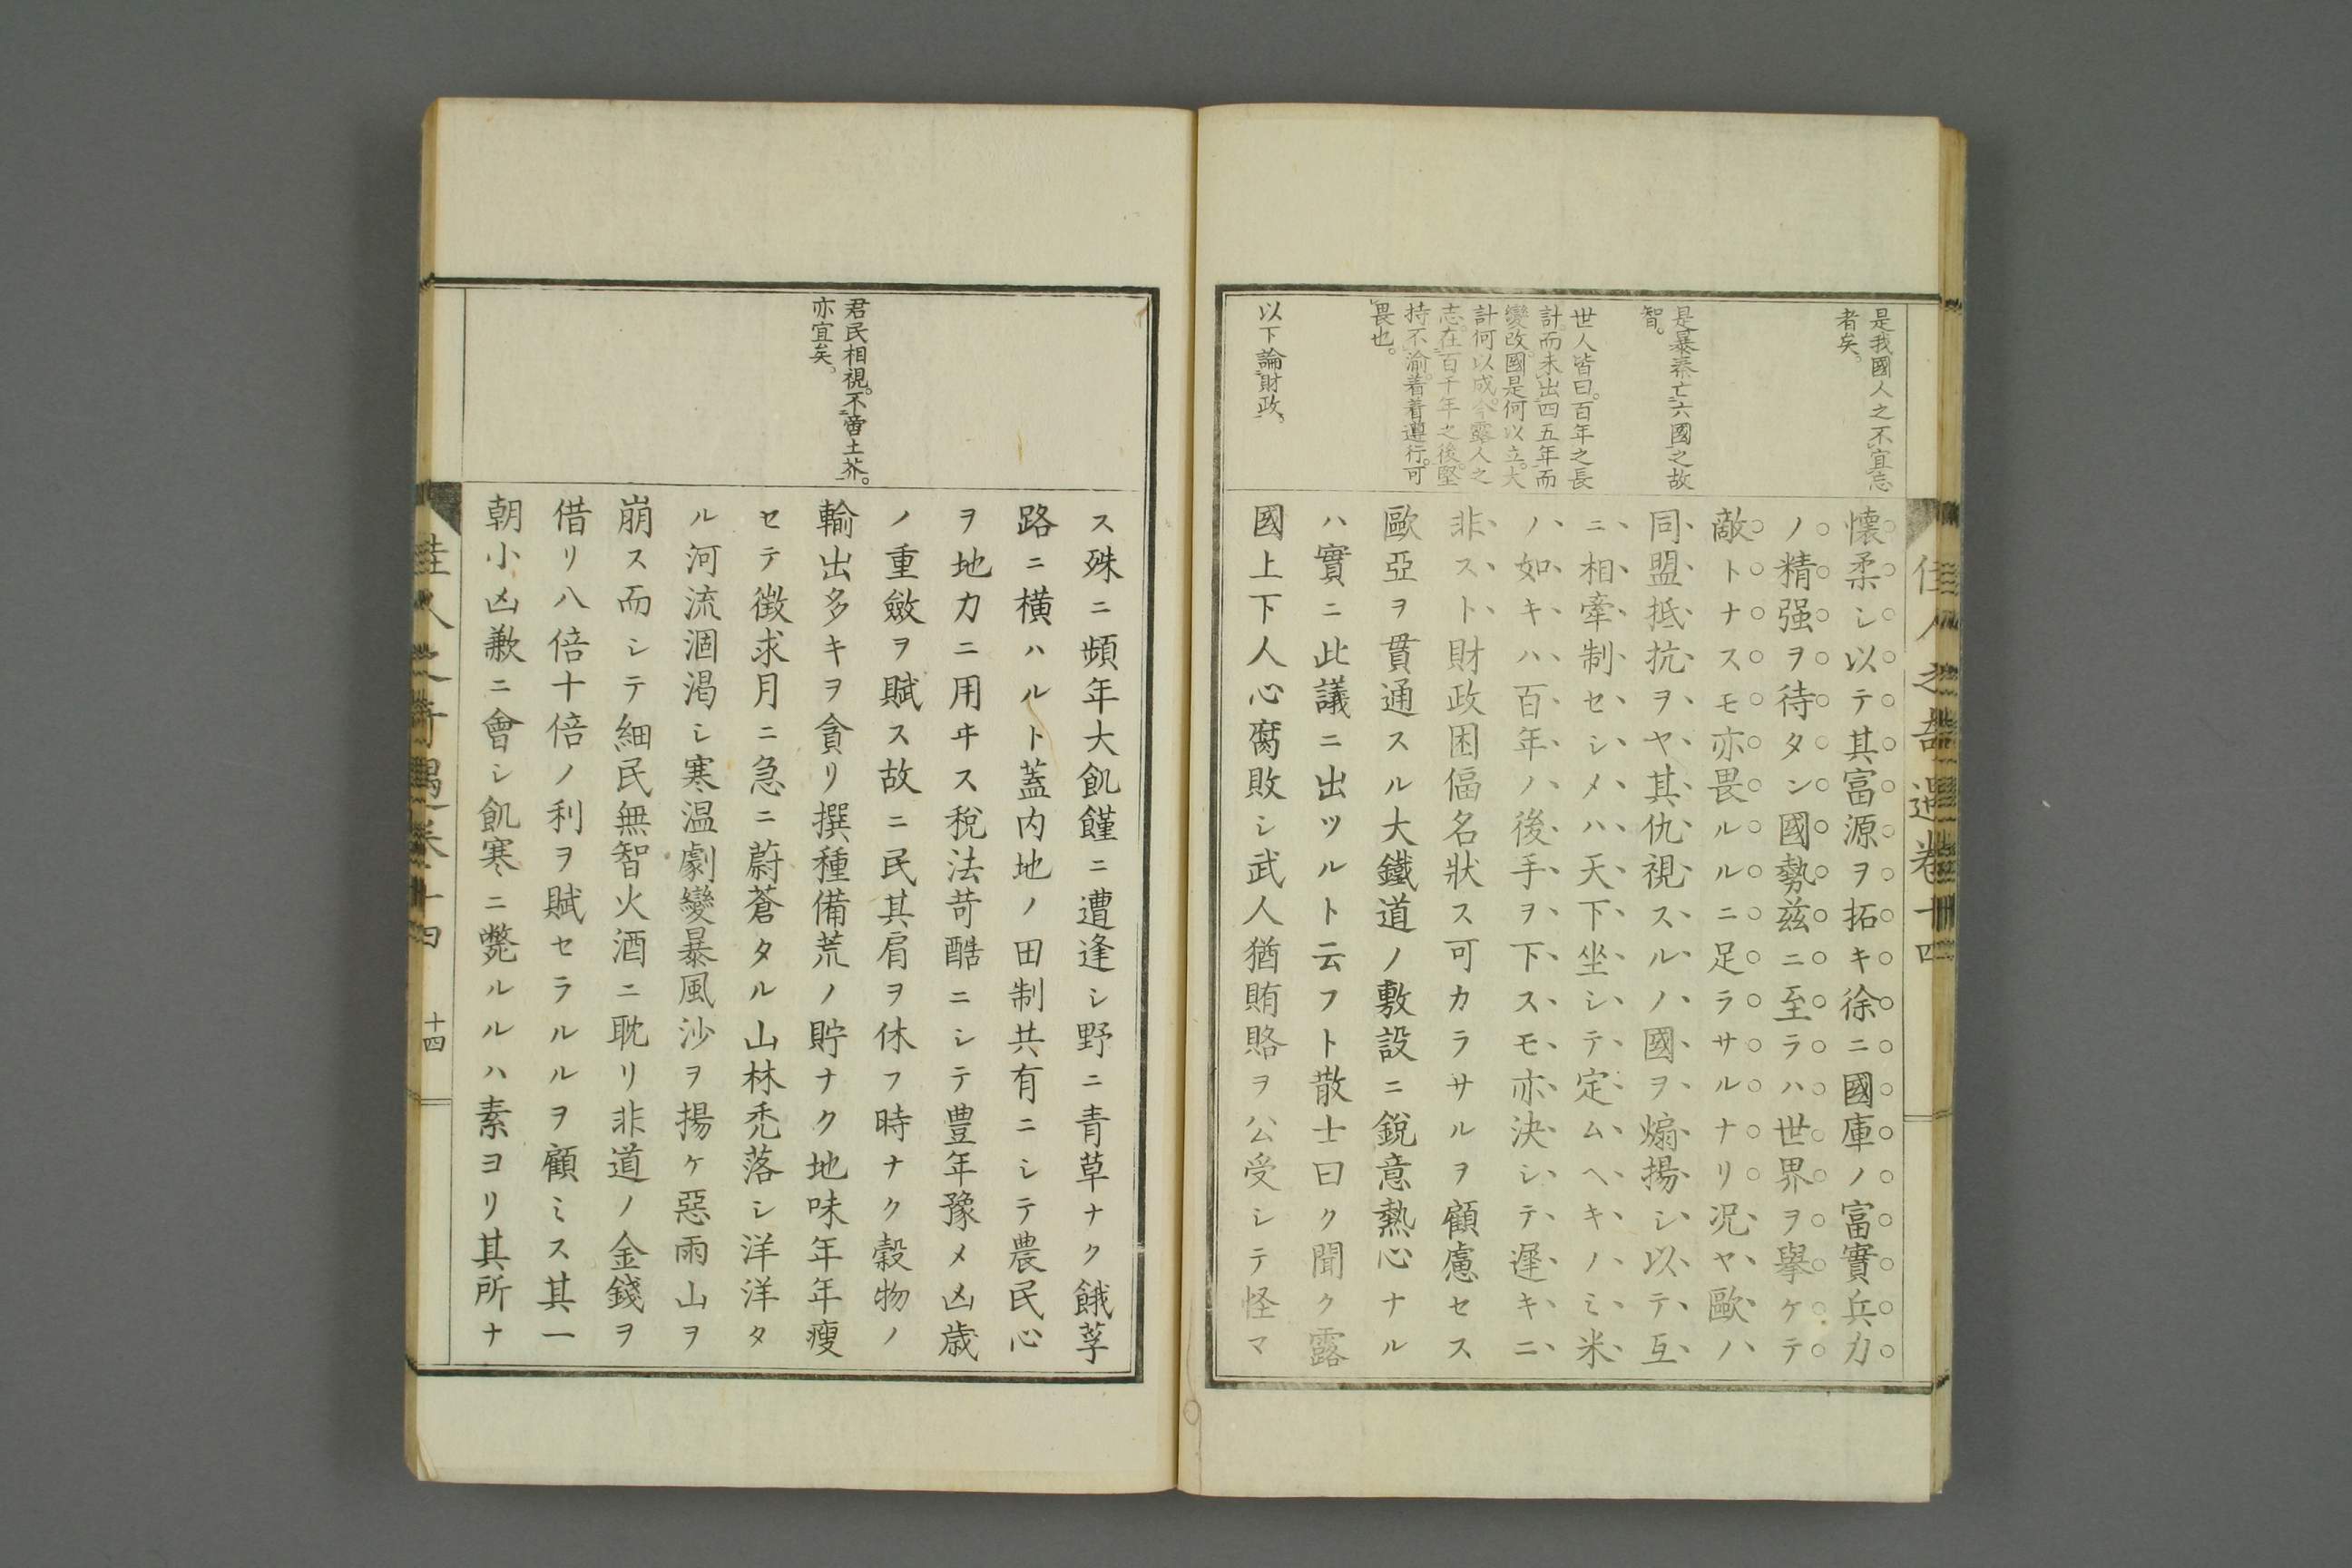 是我國人之不宜忘
者矣。
是暴秦亡六國之故
智。
世人皆曰。百年之長
計。而未出四五年而
變改。國是何以立。大
計何以成。今露人之
志。在百千年之後。堅
持不渝。着着遵行。可
畏也。
以下論財政。
懷柔シ以テ其富源ヲ拓キ徐ニ國庫ノ富實兵力
ノ精强ヲ待タン國勢兹ニ至ラハ世界ヲ擧ケテ
敵トナスモ亦畏ルルニ足ラサルナリ况ヤ歐ハ
同盟抵抗ヲヤ其仇視スルノ國ヲ煽揚シ以テ互
ニ相牽制セシメハ天下坐シテ定ムヘキノミ米
ノ如キハ百年ノ後手ヲ下スモ亦決シテ遲キニ
非スト財政困偪名狀ス可カラサルヲ顧慮セス
歐亞ヲ貫通スル大鐵道ノ敷設ニ銳意熱心ナル
ハ實ニ此議ニ出ツルト云フト散士曰ク聞ク露
國上下人心腐敗シ武人猶賄賂ヲ公受シテ怪マ
佳人之奇遇卷十四
君民相視。不啻土芥。
亦宜矣。
ス殊ニ頻年大飢饉ニ遭逢シ野ニ青草ナク餓莩
路ニ橫ハルト蓋内地ノ田制共有ニシテ農民心
ヲ地力ニ用ヰス稅法苛酷ニシテ豊年豫メ凶歲
ノ重斂ヲ賦ス故ニ民其肩ヲ休フ時ナク穀物ノ
輸出多キヲ貪リ撰種備荒ノ貯ナク地味年年瘦
セテ徴求月ニ急ニ蔚蒼タル山林禿落シ洋洋タ
ル河流涸渇シ寒温劇變暴風沙ヲ揚ケ惡雨山ヲ
崩ス而シテ細民無智火酒ニ耽リ非道ノ金錢ヲ
借リ八倍十倍ノ利ヲ賦セラルルヲ顧ミス其一
朝小凶歉ニ會シ飢寒ニ斃ルルハ素ヨリ其所ナ
佳人之奇遇卷十四
十四